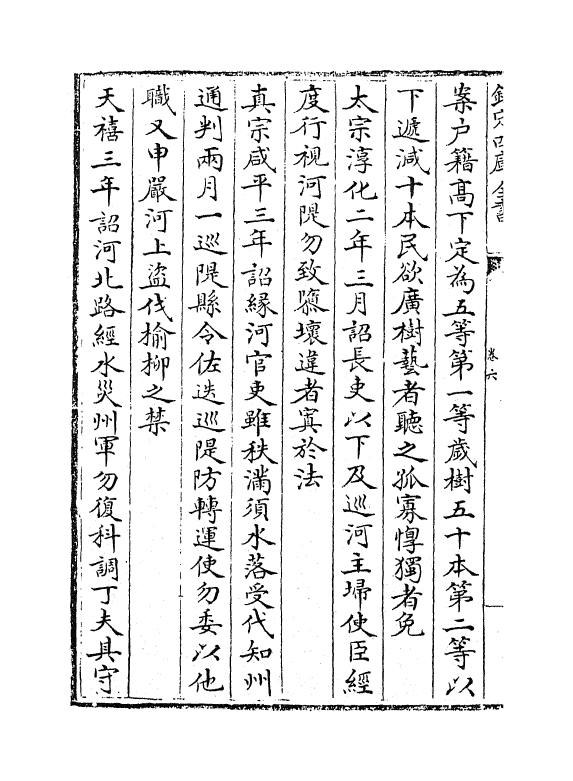 欽定四庫全書
卷六
案户籍髙下定為五等第一等歲樹五十本第二等以
下遞減十本民欲廣樹藝者聽之孤寡惸獨者免
太宗淳化二年三月詔長吏以下及巡河主埽使臣經
度行視河隄勿致隳壞違者寘於法
真宗咸平三年詔緣河官吏雖秩滿須水落受代知州
通判兩月一巡隄縣令佐迭巡隄防轉運使勿委以他
職又申嚴河上盜伐榆桞之禁
天禧三年詔河北路經水災州軍勿復科調丁夫具守